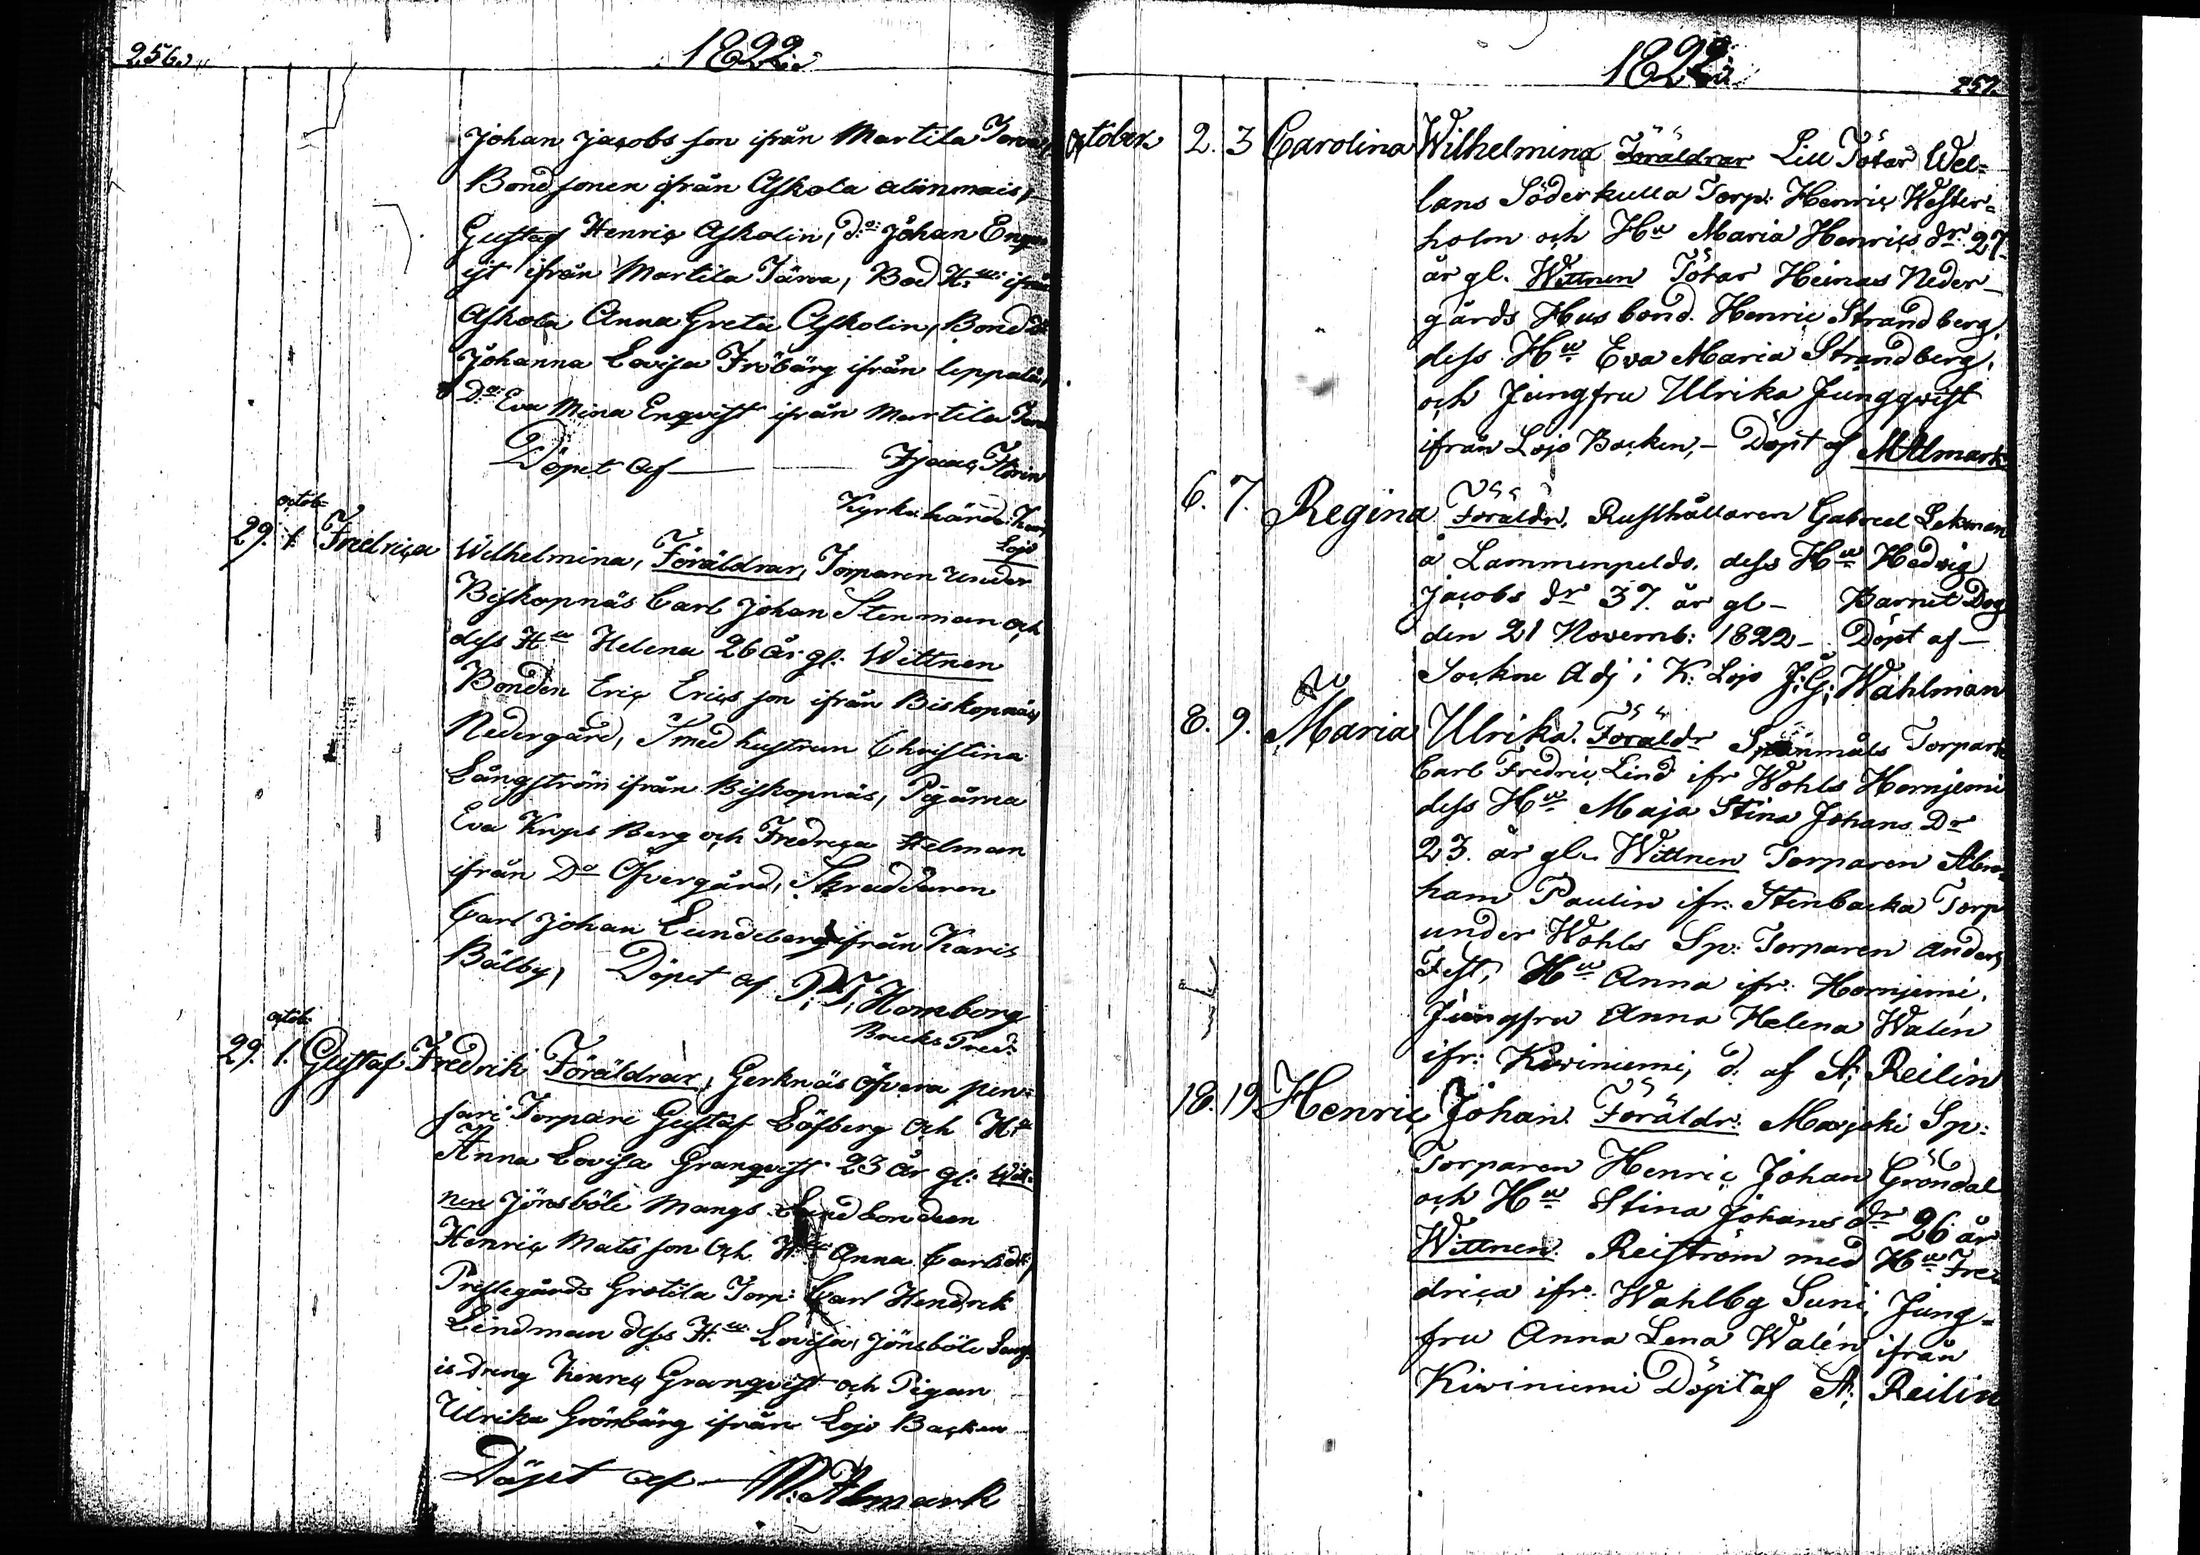 256.
1822.
Johan Jacobs son ifrån Martila
Bond sonen ifrån Askola
Gustaf Henriç Askolin, d:o Johan
ist ifrån Martila Järva, Bond H:u ifrån
Askola Anna Greta Askolin, Bond
Johanna Lovisa Fröbärg ifrån
D:o Eva Mina Enqvist ifrån Martila
Döpet af — Florin
Kyrkoherde
Lojo
octob:
29. 1. Fredriça Wilhelmina, Föräldrar, Torparen under
Biskopnäs Carl Johan Stenman och
dess H:u Helena 26 år gl: Wittnen
Bonden Eriç Erics son ifrån Biskopnäs
Nedergård, Smed hustrun Christina
Långström ifrån Biskopnäs, Pigårna
Eva Berg och Fredriça Helman
ifrån D:o Öfvergård, Skreddaren
Carl Johan Lundeberg ifrån Karis
Bälby, Döpet af P: T: Homborg
Bruks Pred:
octob:
29. 1. Gustaf Fredrik Föräldrar, Gerknäs Öfvera pen=
sari Torpare Gustaf Löfberg och H:u
Anna Lovisa Granqvist 23 år gl: Witt=
nen Jönsböle Mangs bonden
Henriç Mats son och H:u Anna Carlsdr,
Prestegårds Grotila Torp: Carl Hendrik
Lindman dess H:u Lovisa, Jönsböle
is dreng Henriç Granqvist och Pigan
Ulrika Grönbärg ifrån Lojo Backen
Döpet af — M: Almark
1822.
257.
October 2. 3 Carolina Wilhelmina Föräldrar Lill Tötar Wel=
lans Söderkulla Torp: Henriç Wester=
holm och H:u Maria Henrics dr: 27
år gl. Wittnen Tötar Heinas Neder_
gårds Husbond. Henric Strandberg,
dess H:u Eva Maria Strandberg,
och Jungfru Ulrika Junggqvist
ifrån Lojo Backen, – Döpt af M Almark
6. 7. Regina Föräldr, Rusthållaren Gabriel Lekman
å Lammenpelds. dess H:u Hedvig
Jacobs dr 37. år gl – Barnet Dog
den 21 Novemb: 1822 – Döpt af –
Sockne Adj i K: Lojo J: G: Wahlman
8. 9. Maria Ulrika. Föräldr Torpare
Carl Fredriç Lind ifr Wohls Hornjemi
dess H:u Maja Stina Johans Dr
23. år gl. Wittnen Torparen Abra=
ham Paulin ifr: Stenbacka Torp
under Wohls Sp: Torparen Anders
Fest, H:u Anna ifr: Hornjemi,
Jungfru Anna Helena Walén
ifr: Kiviniemi, d: af A: Reilin
18. 19 Henriç Johan Föräldr: Maxjoki Sp:
Torparen Henriç Johan Gröndal
och H:u Stina Johans dr 26 år
Wittnen: Reiström med H:u Fre
driça ifr: Wahlbg Suni, Jung=
fru Anna Lena Walén ifrån
Kiviniemi Döpt af A: Reilin